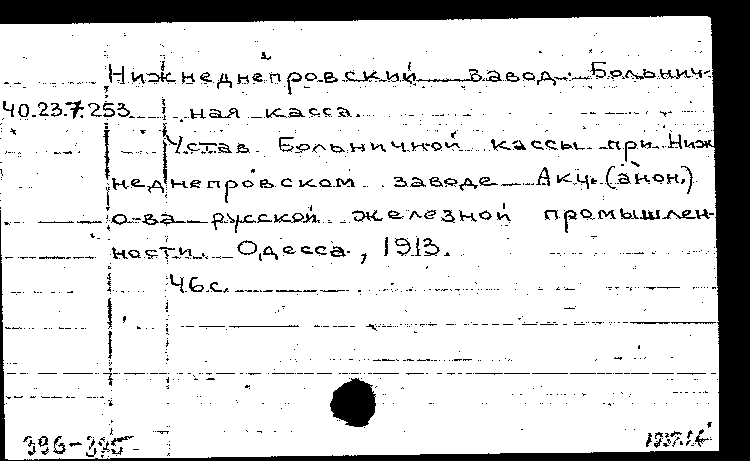 Нижнеднепровский завод. Больнич-
40.23.7.253 ная касса.
Устав Больничной кассы при Ниж
неднепровском заводе Акц. (анон.)
о-ва русской железной промышлен-
ности. Одесса, 1913.
46 с.
396-395